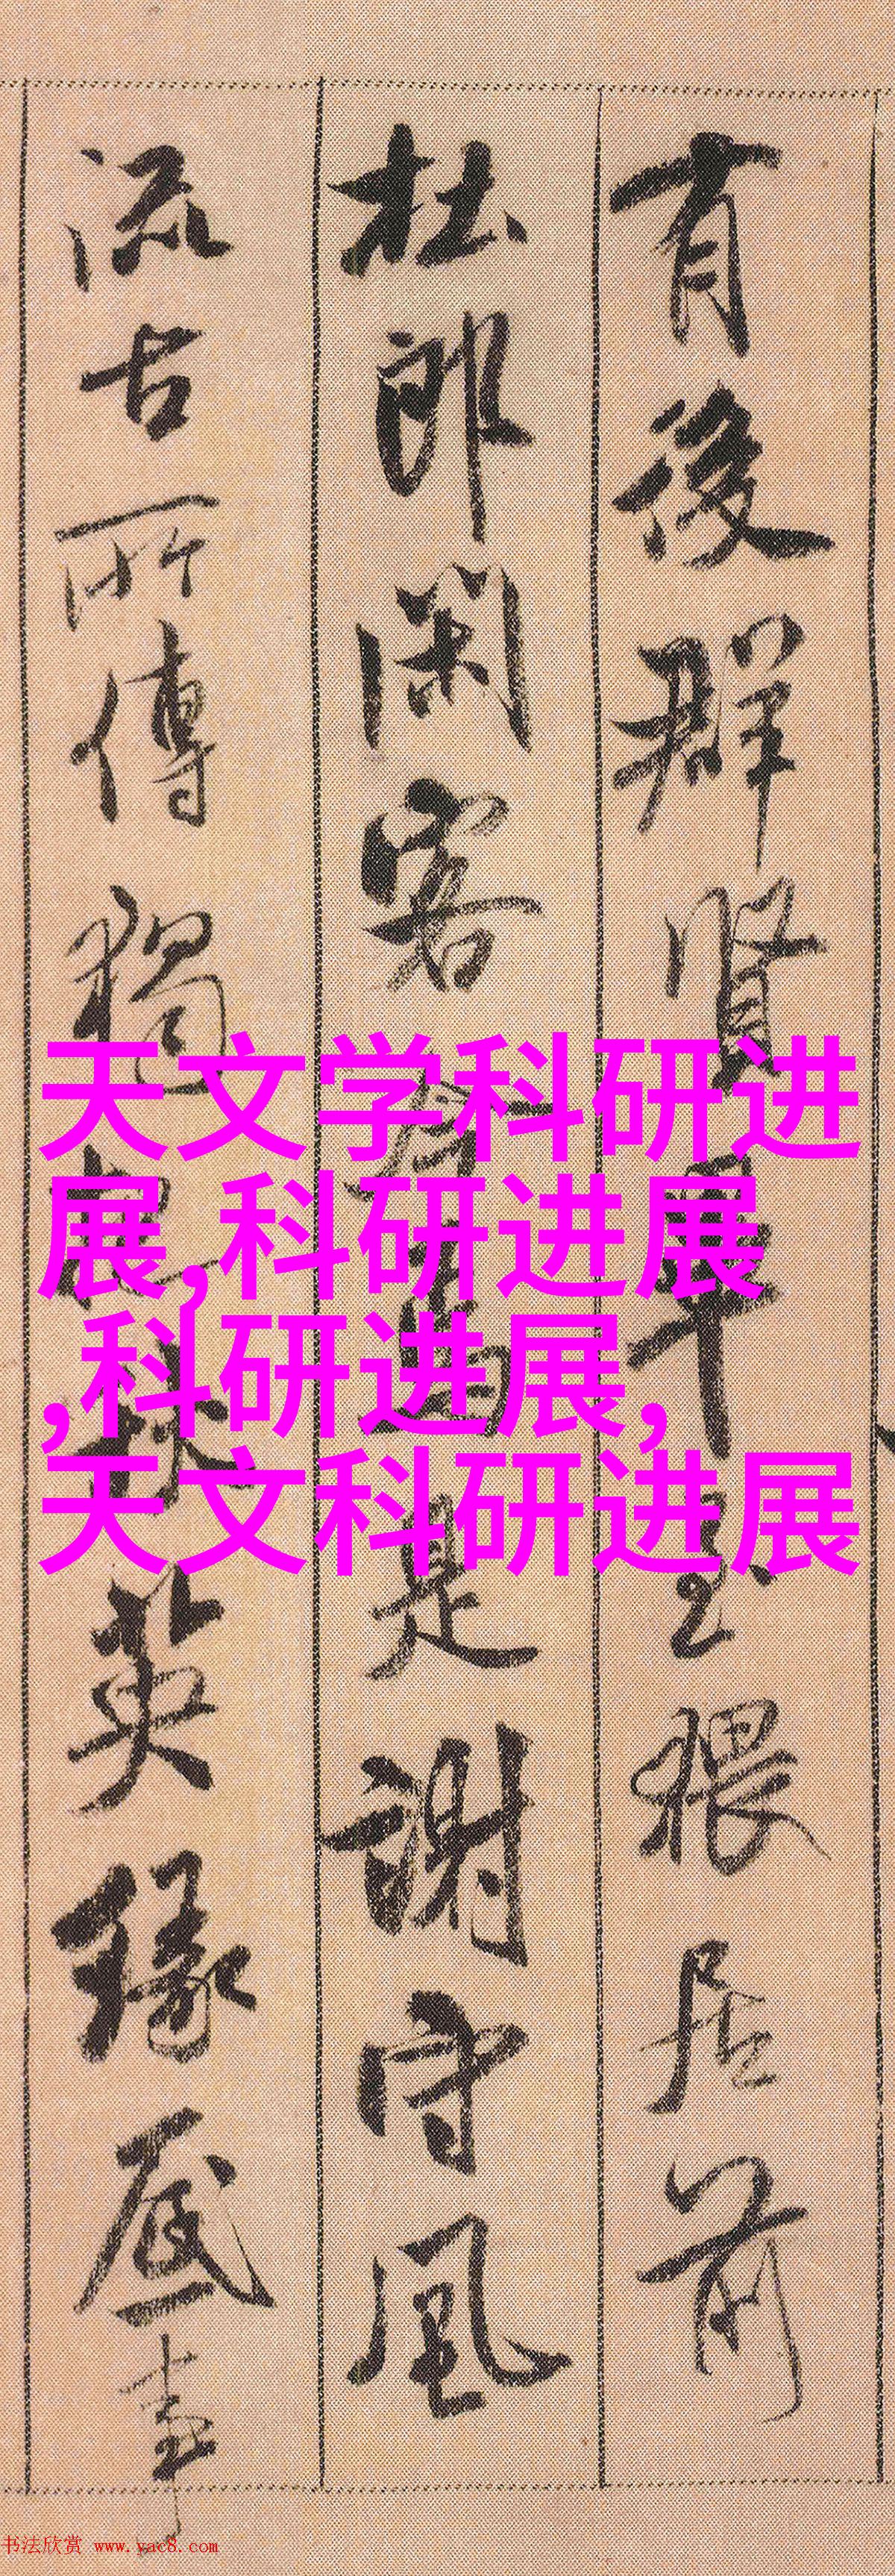 有後群賢畢至猥居前
杜郎閑客今焉是謝守風
流古所傳獨把秋英緣底事
天文学科研进
展,科研进展
,科研进展,
天文科研进展
书法欣赏 www.yac8.com